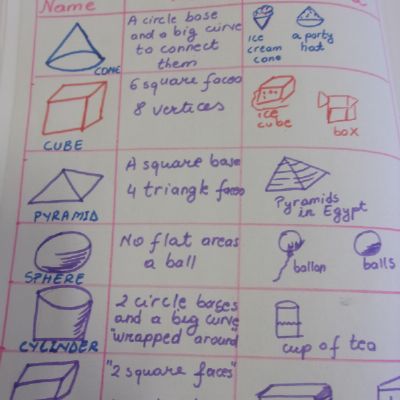 Name
CONE
A circle base
and a big curve
to connect
them
ice
cream
cone
a party
hat
CUBE
6 square faces
8 vertices
ice
cube
box
PYRAMID
A square base
4 triangle faces
Pyramids
in Egypt
SPHERE
No flat areas
a ball
ballon
balls
CYLINDER
2 circle bases
and a big curve
"wrapped around"
cup of tea
"2 square faces"